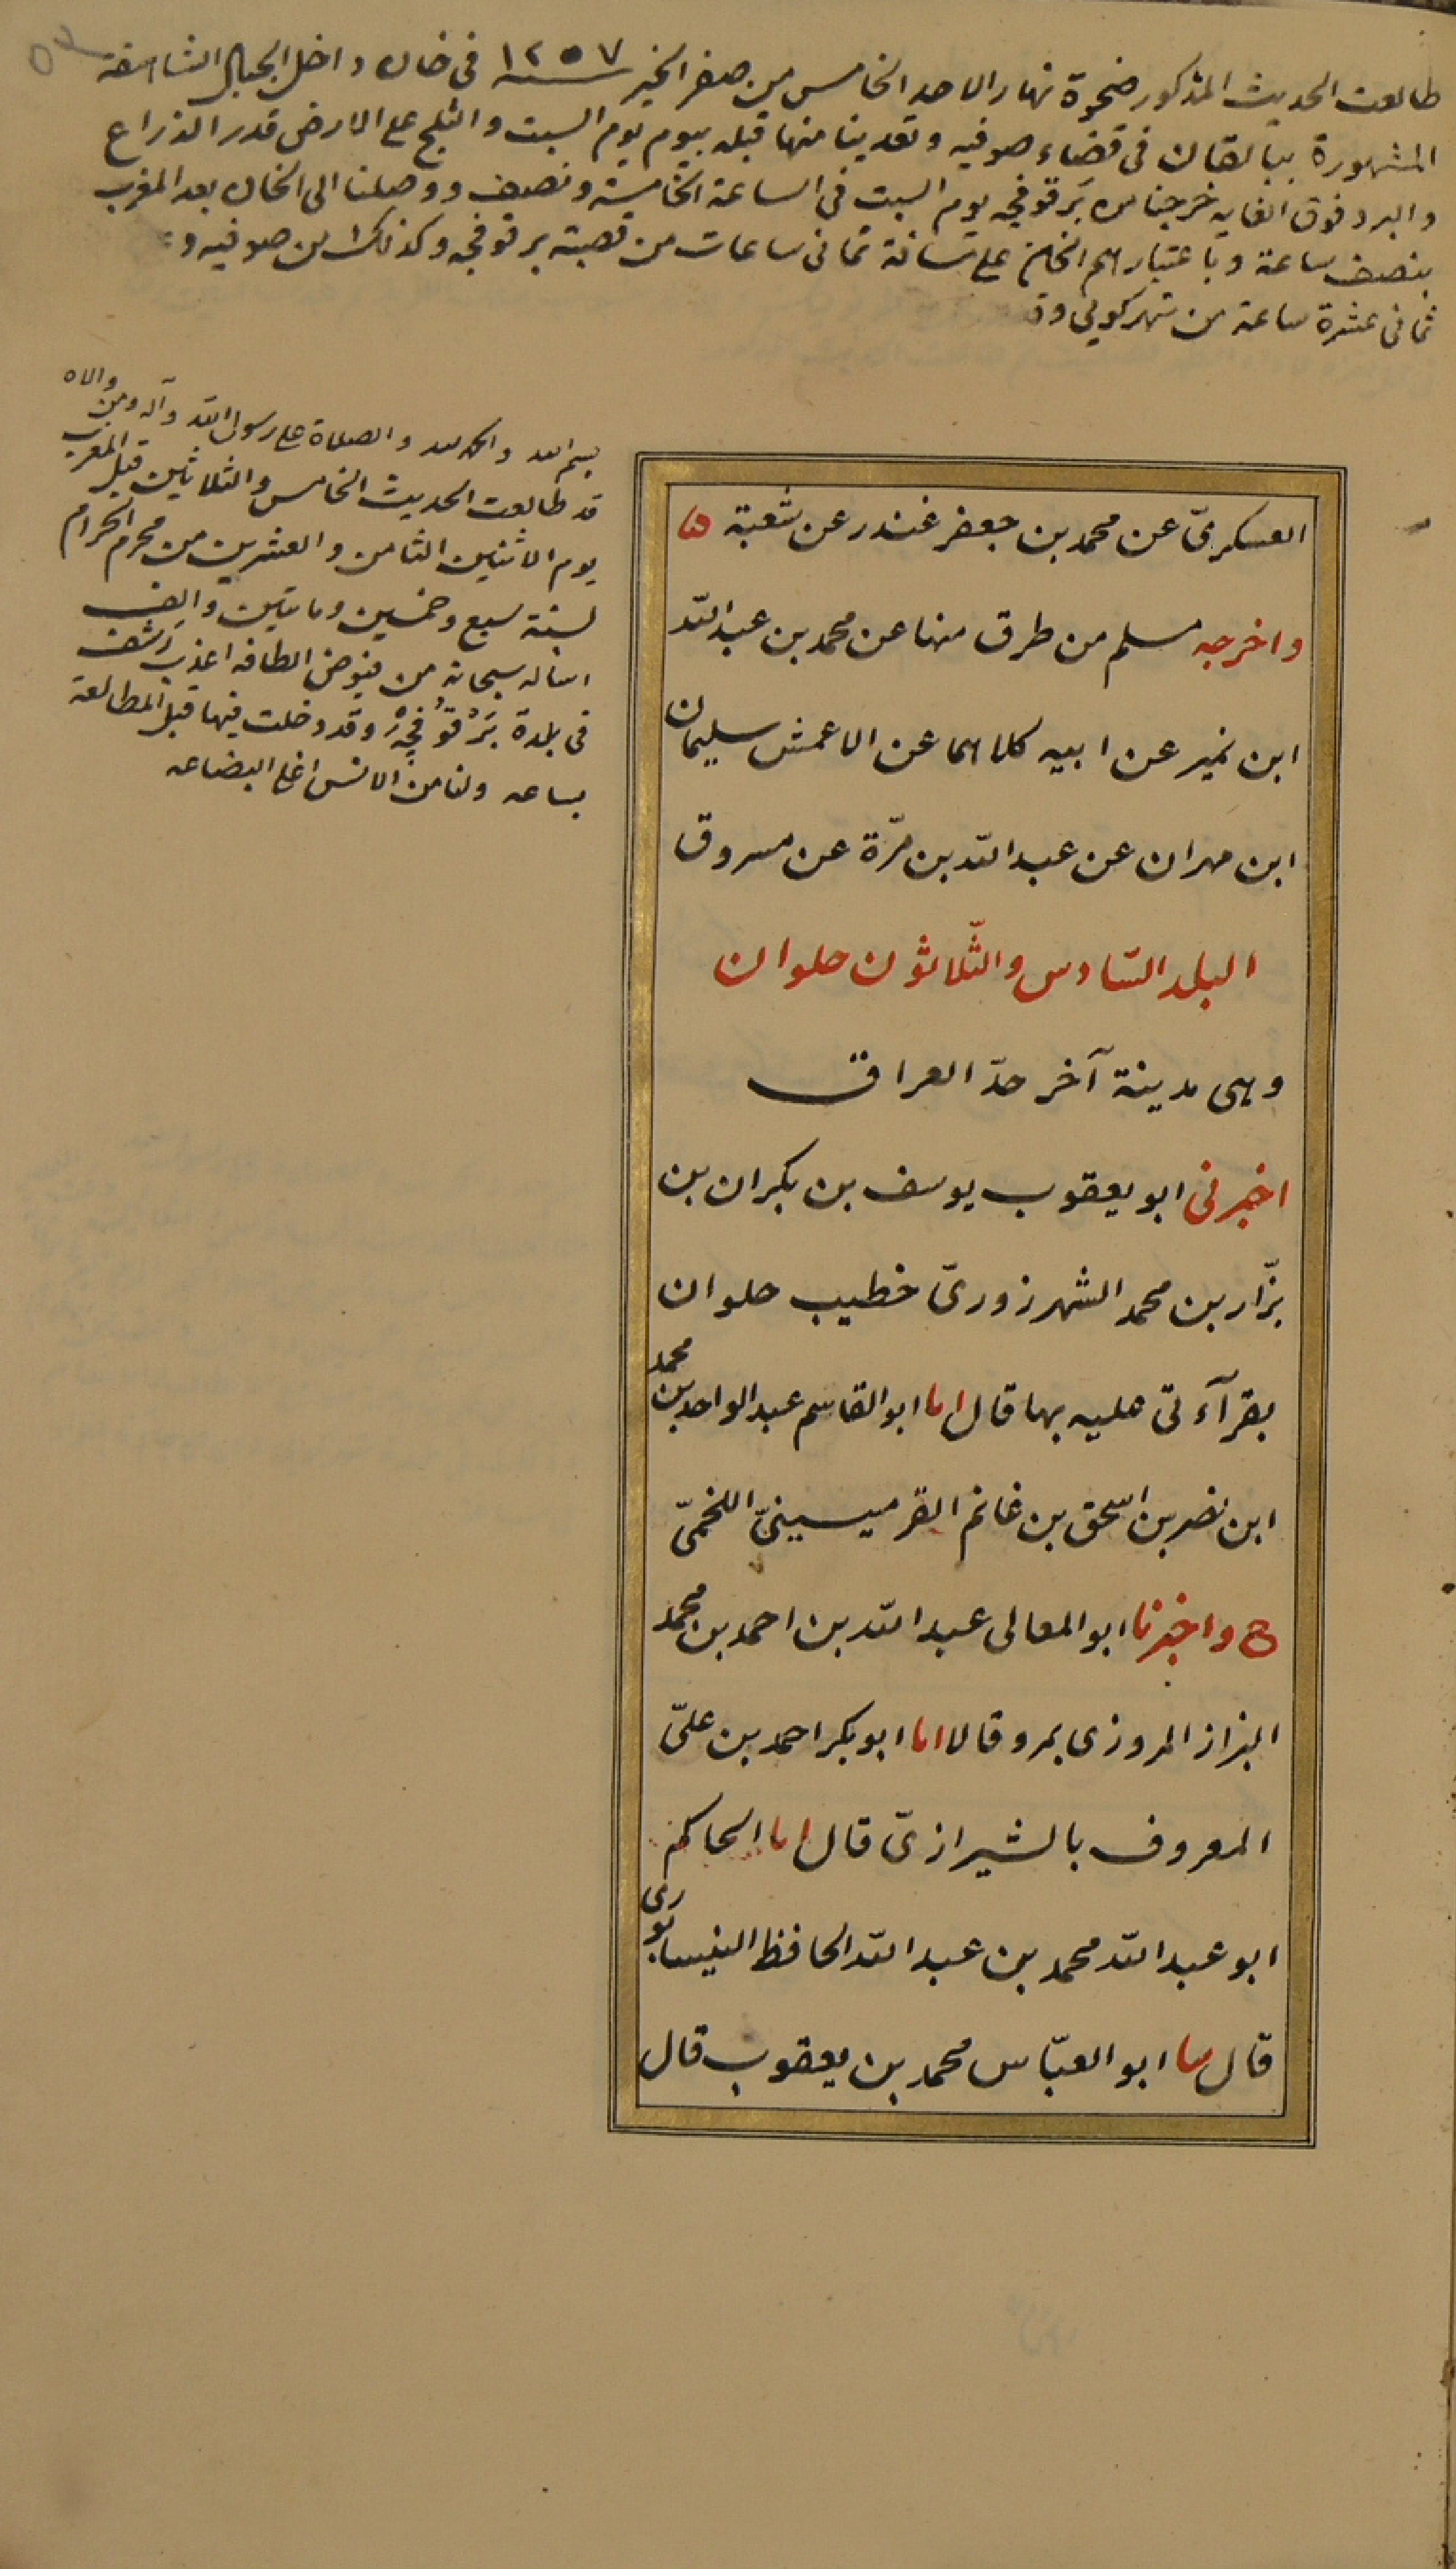 طالعت الحديث المذكور ضحوة نهار الاحد الخامس من صفر الخير سنة ١٢٥٧ في خان داخل الجبال الشاهقة
المشهورة ببالقان في قضاء صوفيه وتعدينا منها قبله بيوم يوم السبت والثلج على الارض قدر الذراع
والبرد فوق الغايه خرجنا من برقوفچه يوم السبت في الساعة الخامسة ونصف ووصلنا الى الخان بعد المغرب
بنصف ساعة وباعتبار على ثمانى ساعات من قصبة برقوفچه وكذلك من صوفيه و
ثمانى عشرة ساعة من شهركويى
بسم الله والحمد لله والصلاة على رسول الله وآله ومن والاه
قد طالعت الحديث الخامس والثلاثين قبل المغرب
يوم الاثنين الثامن والعشرين من محرم الحرام
لسنة سبع وخمسين ومايتين والف
اساله سبحانه من فيوض الطافه اعذب رشف
في بلدة برقوفچه وقد دخلت فيها قبل المطالعة
بساعه ولنا من الانس اغلى البضاعه
العسكرىّ عن محمد بن جعفر غندر عن شعبة
واخرجه مسلم من طرق منها عن محمد بن عبد الله
ابن نمير عن ابيه كلاهما عن الاعمش سليمان
ابن مهران عن عبد الله بن مرّة عن مسروق
البلد السّادس والثّلاثون حلوان
وهى مدينة آخر حدّ العراق
اخبرنى ابو يعقوب يوسف بن بكران بن
بزّار بن محمد الشهرزورىّ خطيب حلوان
بقرآءتى عليه بها قال انا ابو القاسم عبد الواحد بن محمد
ابن نصر بن اسحق بن غانم القرميسينىّ اللخمىّ
ح واخبرنا ابو المعالى عبد الله بن احمد بن محمد
البزاز المروزى بمرو قالا انا ابو بكر احمد بن علىّ
المعروف بالشيرازىّ قال انا الحاكم
ابو عبد الله محمد بن عبد الله الحافظ النيسابورى
قال نا ابو العبّاس محمد بن يعقوب قال